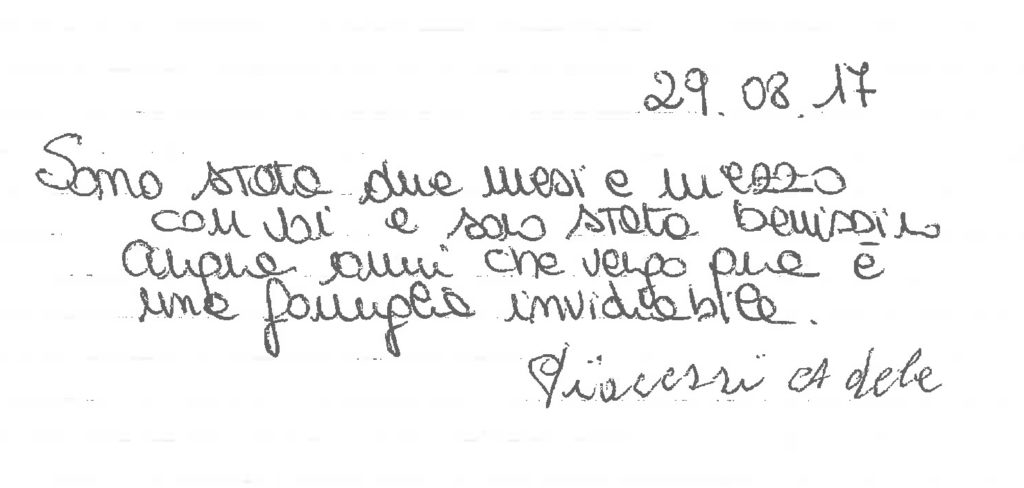 29.08.17
Sono stata due mesi e mezzo
con voi e sono stata benissimo
cinque anni che vengo qua è
una famiglia invidiabile.
Adele